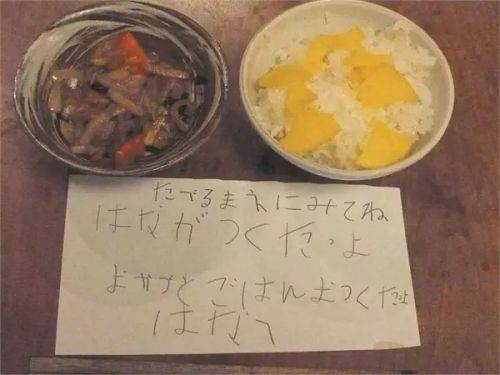 たべるまえにみてね
はながつくたっよ
おかずとごはんおつくたよ
はなへ